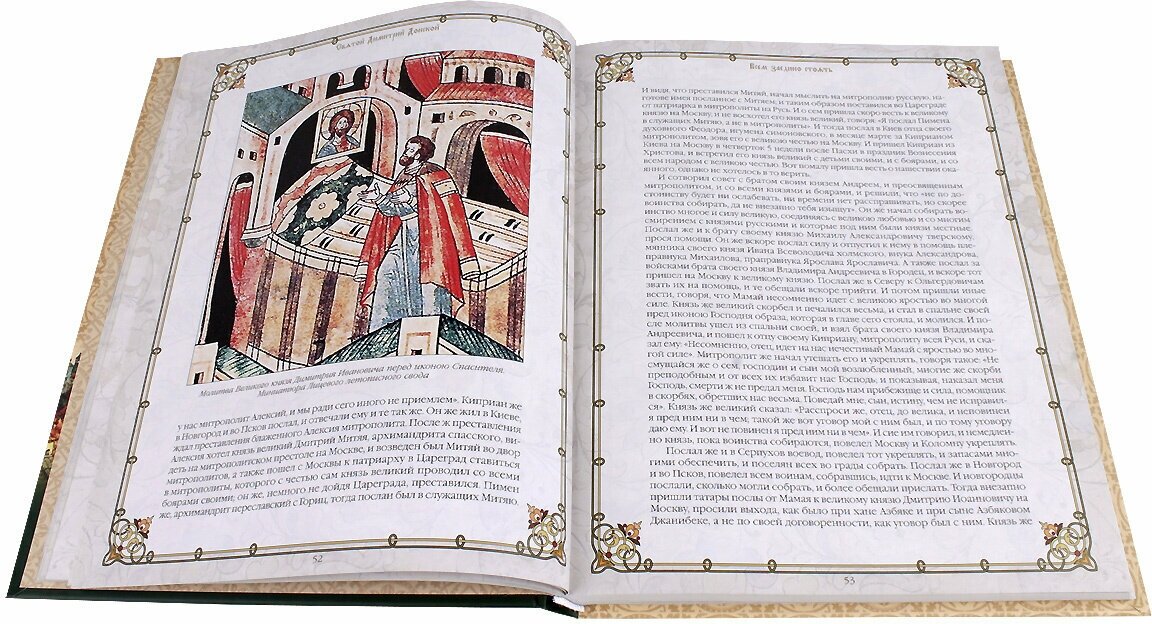 Святой Димитрий Донской
Молитва Великого князя Димитрия Ивановича перед иконою Спасителя.
Миниатюра Лицевого летописного свода
у нас митрополит Алексий, и мы ради сего иного не приемлем». Киприан же
в Новгород и во Псков послал, и отвечали ему и те так же. Он же жил в Киеве,
ждал преставления блаженного Алексия митрополита. После ж преставления
Алексия хотел князь великий Дмитрий Митяя, архимандрита спасского, ви-
деть на митрополитском престоле на Москве, и возведен был Митяй во двор
митрополита, а также вошел с Москвы к патриарху в Цареград ставиться
в митрополиты, которого с честью сам князь великий проводил со всеми
боярами своими; он же, немного не дойдя Цареграда, преставился. Пимен
же, архимандрит переславский с Гориц, тогда послан был в служащих Митяю.
52
Всем заедино стоять
И видя, что преставился Митяй, начал мыслить на митрополию русскую, на-
готове имея посланное с Митяем, и таким образом поставился во Цареграде
от патриарха в митрополиты на Русь. И о сем пришла скоро весть к великому
князю на Москву, и не восхотел его князь великий, говоря: «Я послал Пимена
в служащих Митяю, а не в митрополиты». И тогда послал в Киев отца своего
духовного Феодора, игумена симоновского, в месяце марте за Киприаном
митрополитом, зовя его с великою честью на Москву. И пришел Киприан из
Киева на Москву в четверток 5 недели после Пасхи в праздник Вознесения
Христова, и встретил его князь великий с детьми своими, и с боярами, и со
всем народом с великою честью. Вот помалу пришла весть о нашествии ока-
янного, однако не хотелось в то верить.
И сотворил совет с братом своим князем Андреем, и преосвященным
митрополитом, и со всеми князями и боярами, и решили, что «не по до-
стоинству будет ни ослабевать, ни времени нет расстраивать, но скорее
воинства собирать, да не внезапно тебя изыщут». Он же начал собирать во-
инство многое и силу великую, соединяясь с великою любовью и со многим
смирением с князями русскими и которые под ним были князи местные.
Послал же и к брату своему князю Михаилу Александровичу тверскому,
прося помощи. Он же вскоре послал силу и отпустил к нему в помощь пле-
мянника своего князя Ивана Всеволодича холмского, внука Александрова,
правнука Михаилова, праправнука Ярослава Ярославича. А также послал за
войсками брата своего князя Владимира Андреевича в Городец, и вскоре тот
пришел на Москву к великому князю. Послал же в Северу к Ольгердовичам
звать их на помощь, и те обещали вскоре прийти. И потом пришли иные
вести, говоря, что Мамай несомненно идет с великою яростью во многой
силе. Князь же великий скорбел и печалился весьма, и стал в спальне своей
пред иконою Господня образа, которая в главе сего стояла, и молился. И по-
сле молитвы ушел из спальни своей, и взял брата своего князя Владимира
Андреевича, и пошел к отцу своему Киприану, митрополиту всея Руси, и ска-
зал ему: «Несомненно, отец, идет на нас нечистивый Мамай с яростью во мно-
гой силе». Митрополит же начал утевать его и укреплять, говоря такое: «Не
смущайся же о сем; господин и сын мой возлюбленный, многие же скорби
преподобным и от всех их избавит нас Господь, и показывая, наказал меня
Господь, смерти ж не предал меня. Господь нам прибежище и сила, помощник
в скорбях, обретших нас весьма. Поведай мне, сын, истину, чем не исправил-
ся». Князь же великий сказал: «Расспроси же, отец, до велика, и неповинен
я пред ним ни в чем; такой же вот уговор мой с ним был, и по тому уговору
даю ему. И вот не повинен я пред ним ни в чем». И сие им говорил, и немедлен-
но князь, пока воинства собираются, повелел Москву и Коломну укреплять.
Послал же и в Серпухов воевод, повелел тот укреплять, и запасами
многими обеспечить, и поселян всех во грады собрать. Послал же в Новгород
и во Псков, повелел всем воинам, собравшись, идти к Москве. И новгородцы
послали, сколько могли собрать, и более обещали прислать. Тогда внезапно
пришли татары послы от Мамая к великому князю Дмитрию Иоанновичу на
Москву, просили выхода, как было при хане Азбяке и при сыне Азбяковом
Джанибеке, а не по своей договоренности, как уговор был с ним. Князь же
53